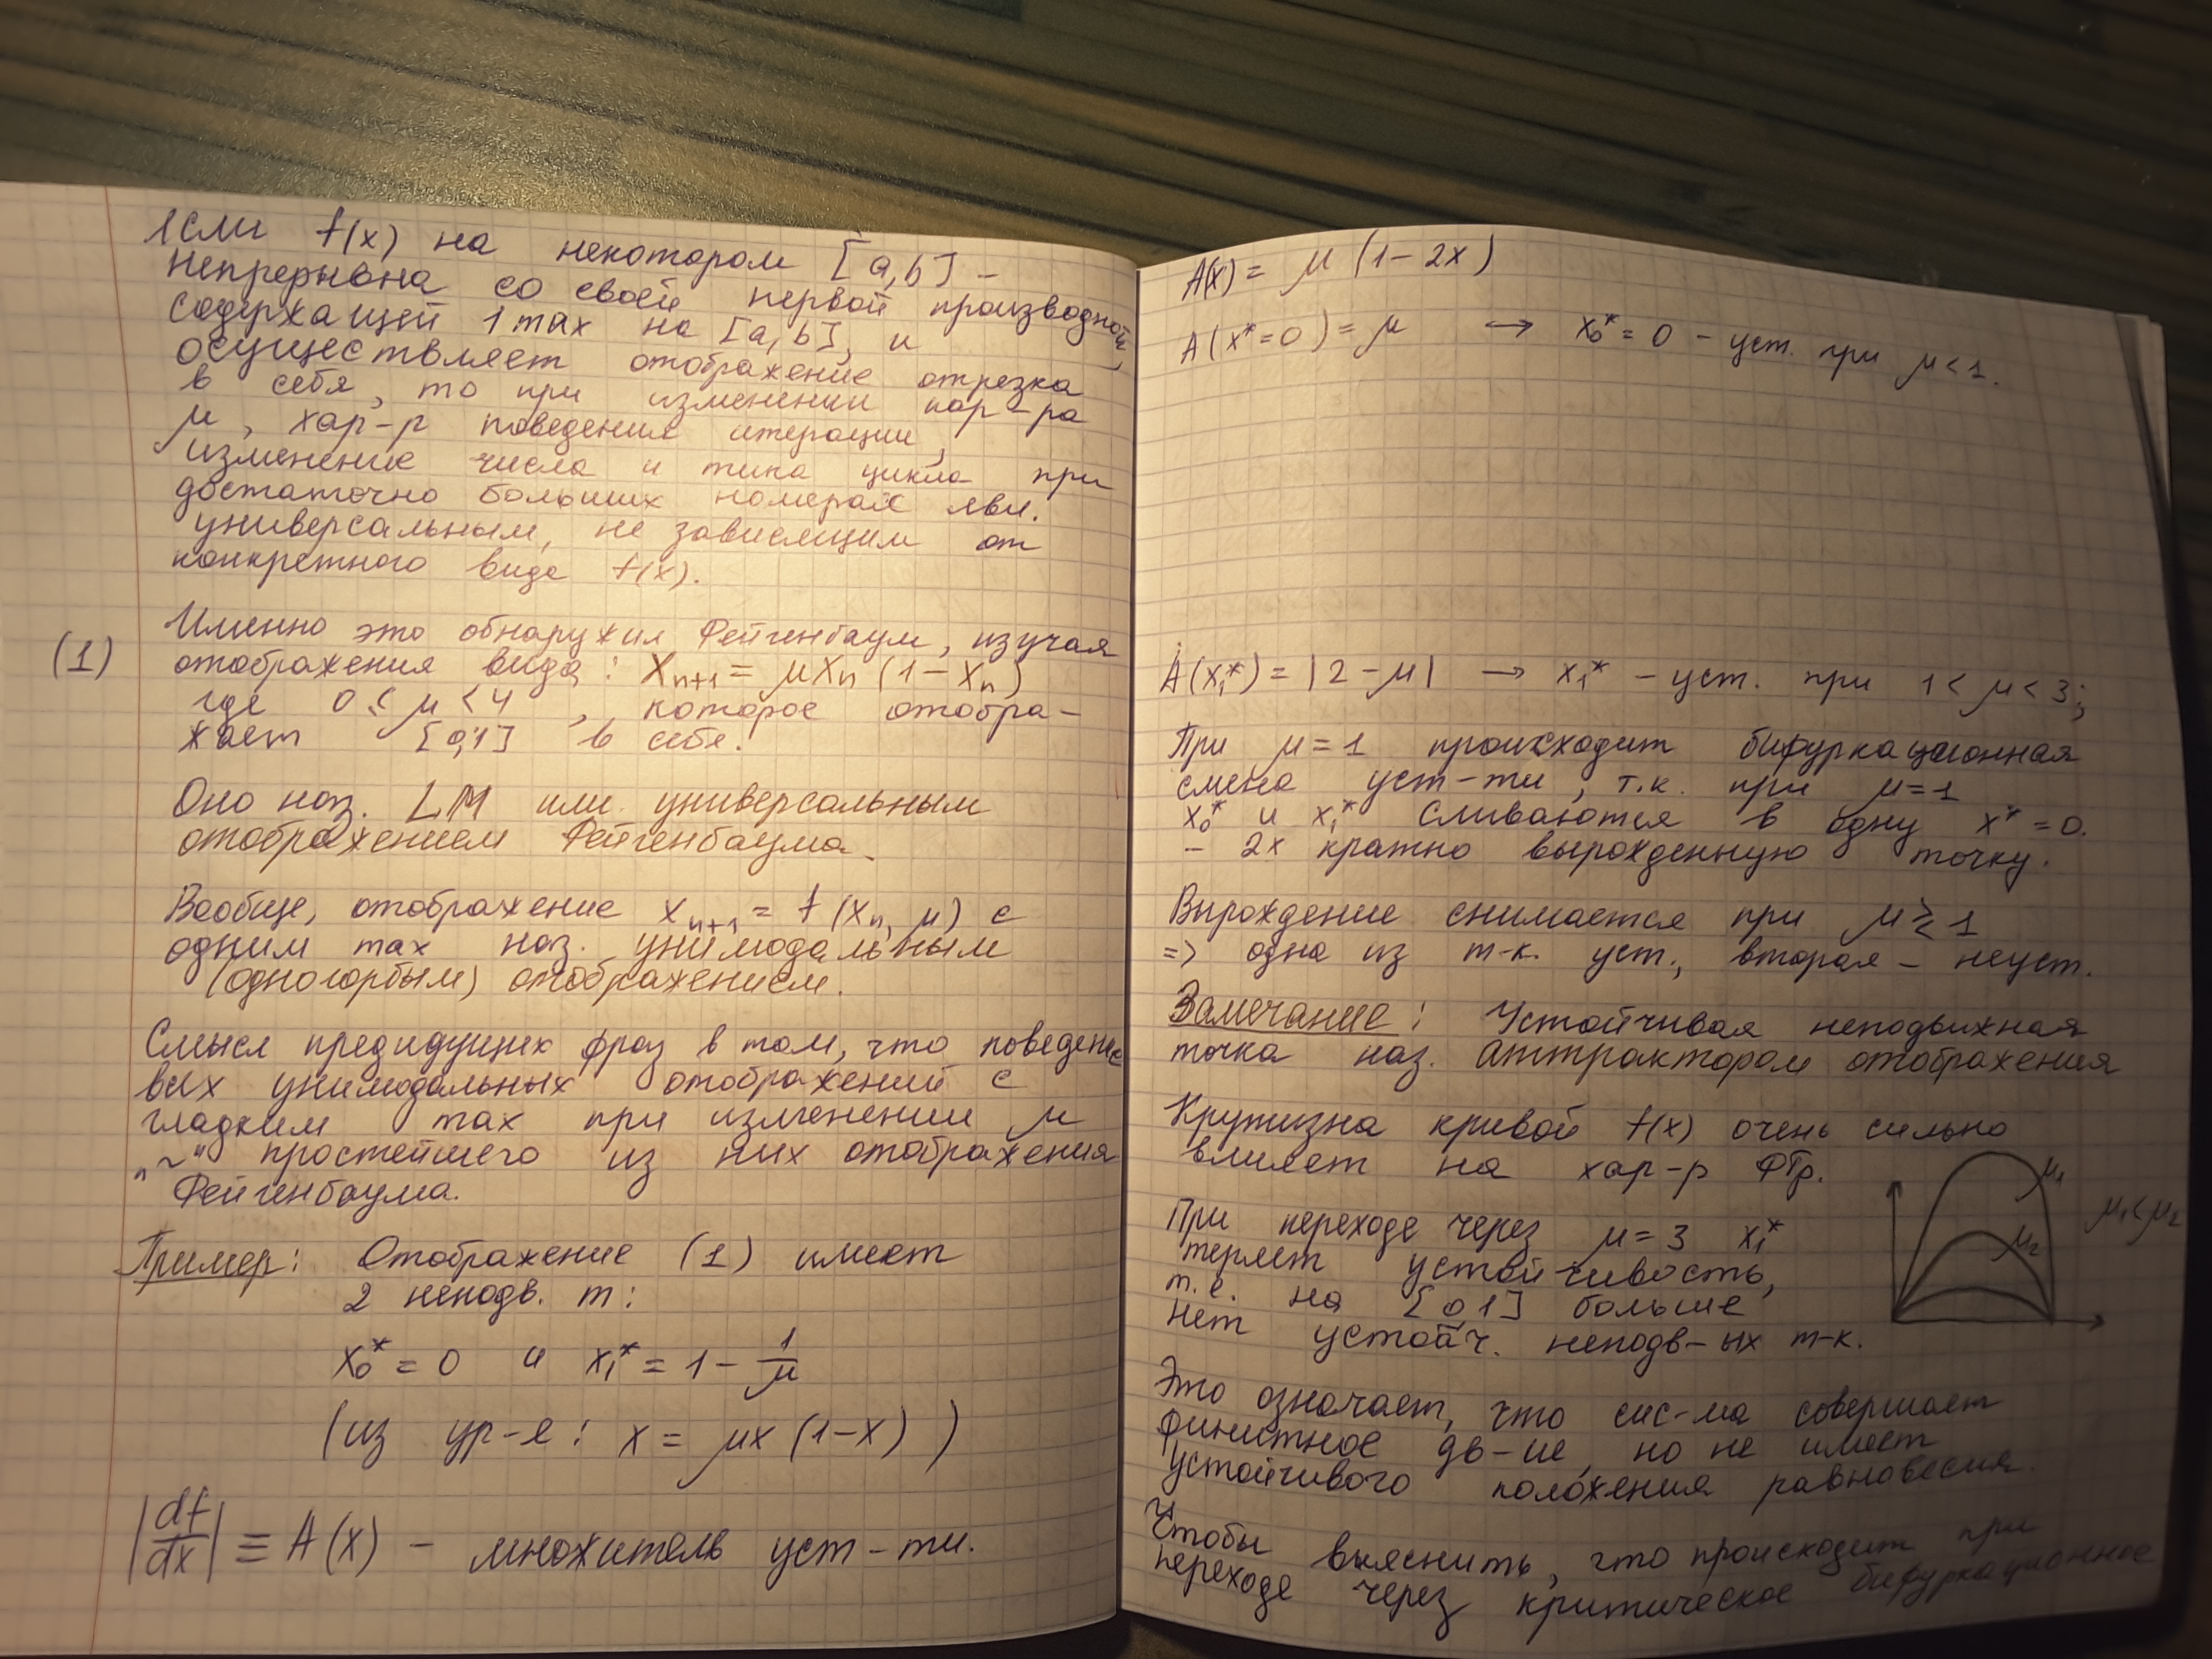 Если f(x) на некотором [a,b] –
непрерывна со своей первой производной,
содержащей 1 max на [a,b], и
осуществляет отображение отрезка
в себя, то при изменении пар-ра
μ, хар-р поведения итерации,
изменение числа и типа цикла при
достаточно больших номерах явл.
универсальным, не зависящим от
конкретного вида f(x).
Именно это обнаружил Фейгенбаум, изучая
(1) отображения вида: Xn+1 = μXn (1 – Xn)
где 0 ≤ μ < 4, которое отобра-
жает [0,1] в себя.
Оно наз. LM или универсальным
отображением Фейгенбаума.
Вообще, отображение xn+1 = f(xn, μ) с
одним max наз. унимодальным
(одногорбым) отображением.
Смысл предидущих фраз в том, что поведение
всех унимодальных отображений с
гладким max при изменении μ
"~" простейшего из них отображения
Фейгенбаума.
Пример: Отображение (1) имеет
2 неподв. т:
x0* = 0 и x1* = 1 – 1/μ
(из ур-я: x = μx (1–x))
|df/dx| ≡ A(x) – множитель уст-ти.
A(x) = μ (1–2x)
A(x*=0) = μ → x0* = 0 – уст. при μ<1.
A(x1*) = |2–μ| → x1* – уст. при 1< μ < 3;
При μ=1 происходит бифуркационная
смена уст-ти, т.к. при μ=1
x0* и x1* сливаются в одну x* = 0.
– 2х кратно вырожденную точку.
Вырождение снимается при μ ≷ 1
=> одна из т-к. уст., вторая – неуст.
Замечание: Устойчивая неподвижная
точка наз. аттрактором отображения
Крутизна кривой f(x) очень сильно
влияет на хар-р ФТр.
μ1
μ2
μ1<μ2
При переходе через μ=3 x1*
теряет устойчивость,
т.е. на [0,1] больше
нет устойч. неподв-ых т-к.
Это означает, что сис-ма совершает
финитное дв-ие, но не имеет
устойчивого положения равновесия.
Чтобы выяснить, что происходит при
переходе через критическое бифуркационное